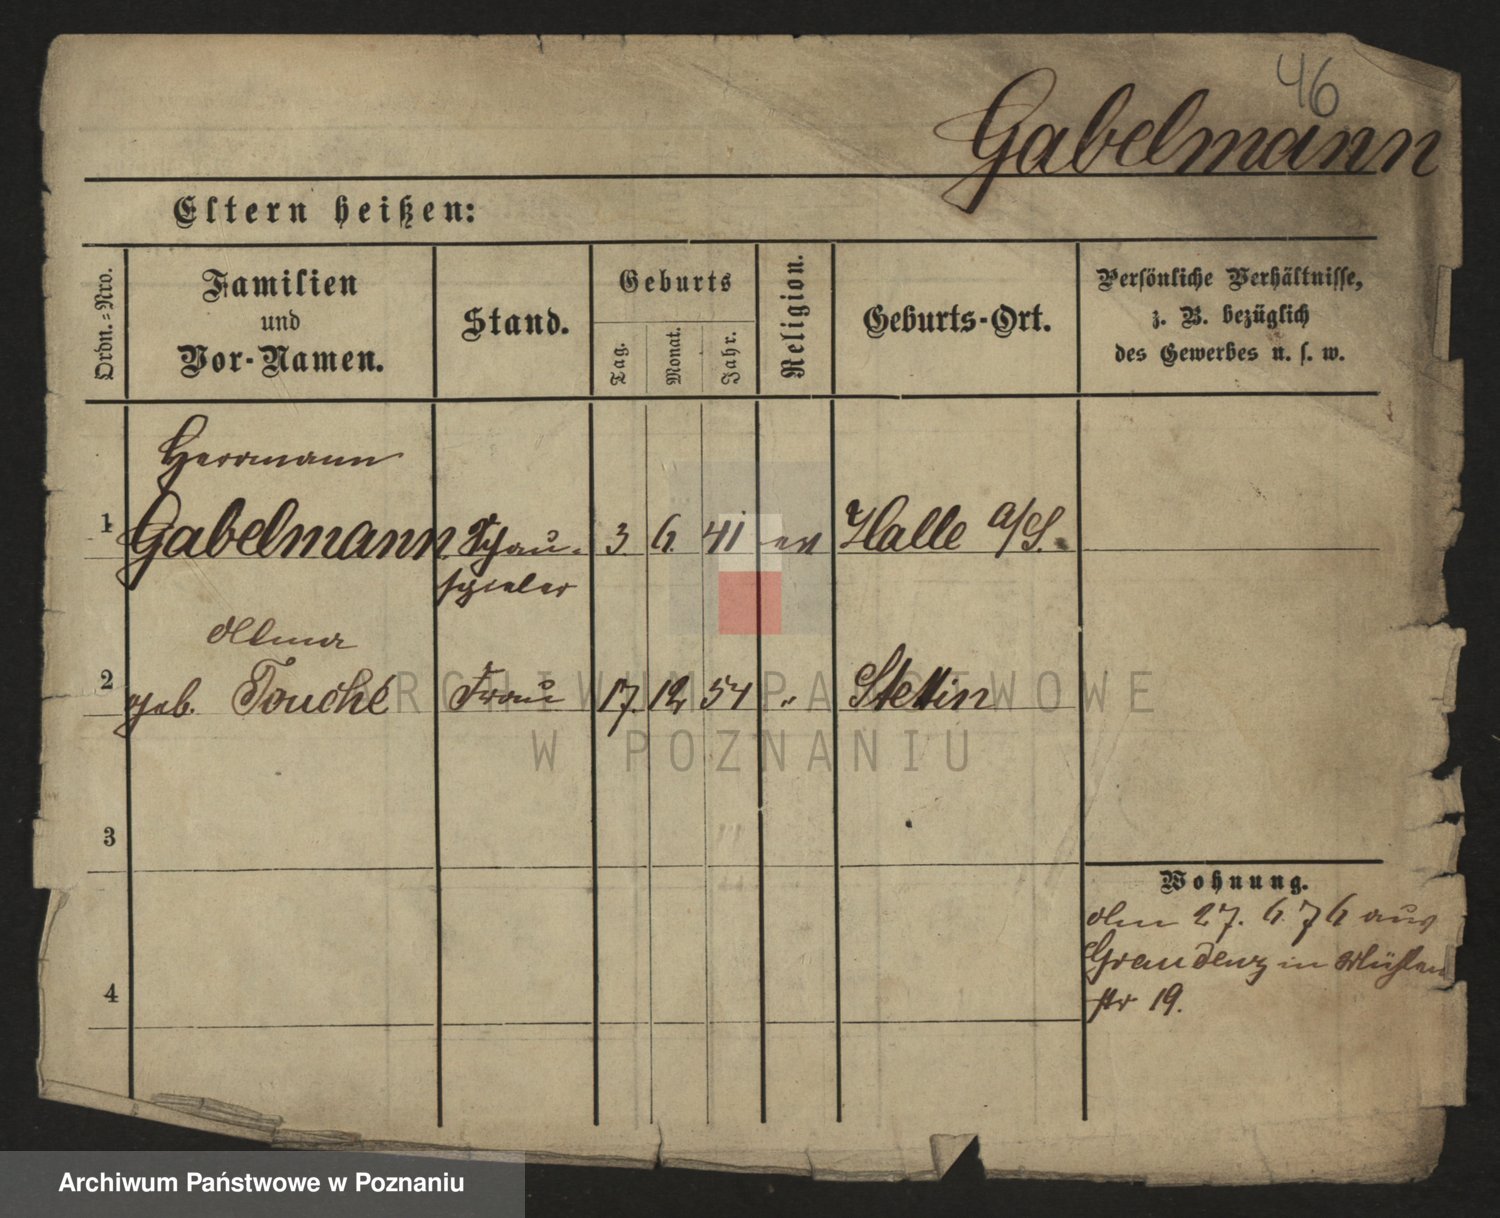 46
Gabelmann
Eltern heißen:
Ordn.=Nro.
Familien
und
Vor-Namen.
Stand.
Geburts
Tag.
Monat.
Jahr.
Religion.
Geburts-Ort.
Persönliche Verhältnisse,
z. B. bezüglich
des Gewerbes u. s. w.
Herrmann
1 Gabelmann Schau- 3 6. 41 ev Halle a/S.
spieler
Alma
2 geb. Touché Frau 17. 12 54 " Stettin
ARCHIWUM PAŃSTWOWE
W POZNANIU
3
Wohnung.
Am 27. 6 76 aus
Graudenz in Mühlen
4
str 19.
Archiwum Państwowe w Poznaniu